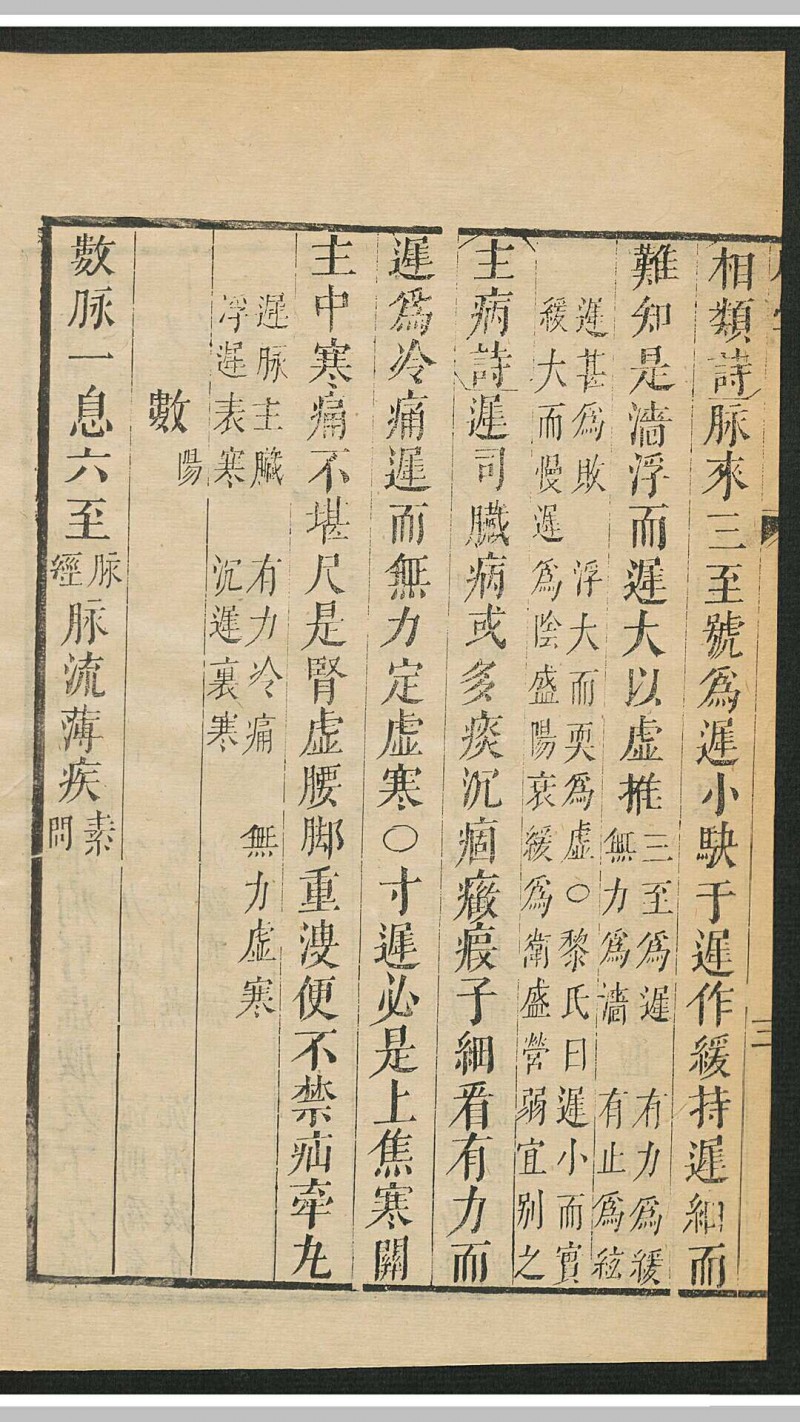 相類詩脉來三至號爲遲小駃于遲作緩持遲細而
難知是濇浮而遲大以虛推三至爲遲 有力爲緩
無力爲濇 有止爲絃
遲甚爲敗 浮大而耎爲虛○黎氏曰遲小而實
緩大而慢遲爲陰盛陽衰緩爲衛盛營弱宜別之
主病詩遲司臟病或多痰沉痼癥瘕子細看有力而
遲爲冷痛遲而無力定虛寒○寸遲必是上焦寒關
主中寒痛不堪尺是腎虛腰脚重溲便不禁疝牽丸
遲脉主臟 有力冷痛 無力虛寒
浮遲表寒 沉遲裏寒
數陽
數脉一息六至脉經脉流薄疾素問
三